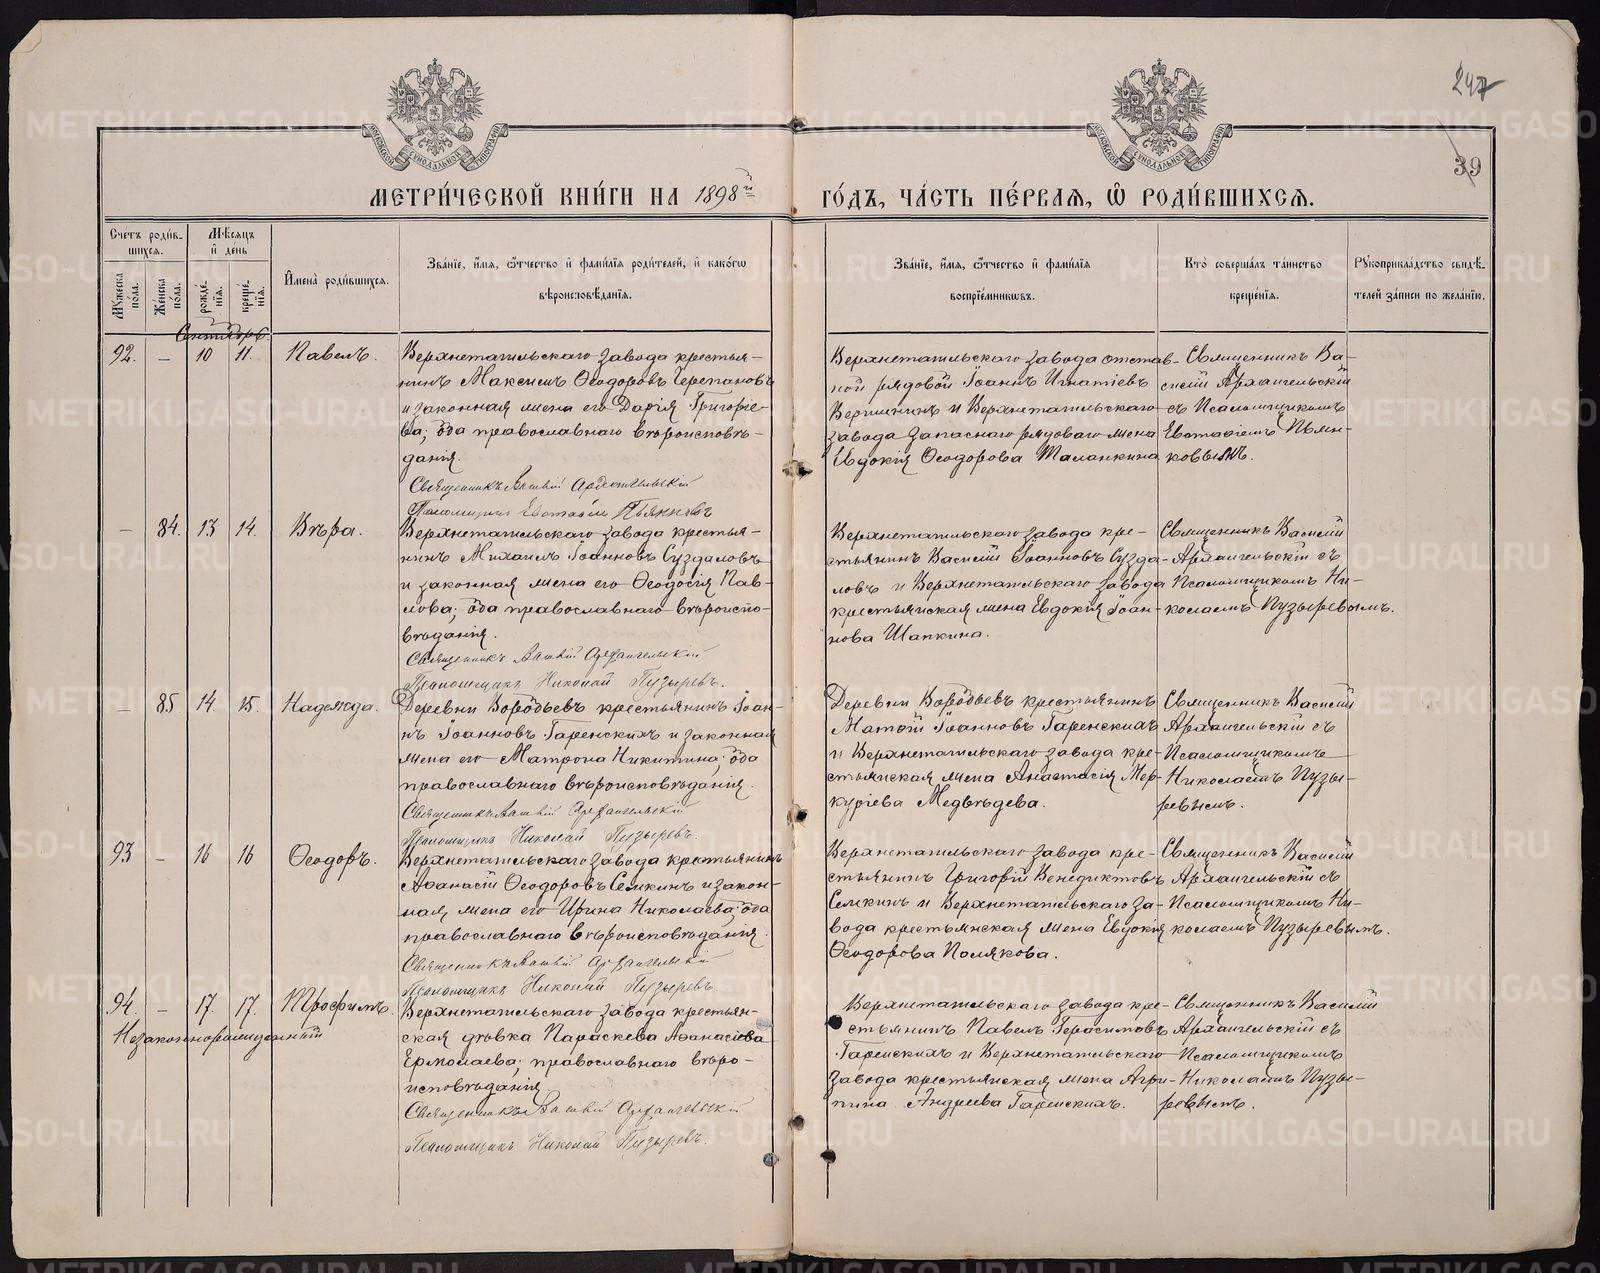 247
39
МОСКОВСКОЙ СѴНОДАЛЬНОЙ ТИПОГРАФІИ
МОСКОВСКОЙ СѴНОДАЛЬНОЙ ТИПОГРАФІИ
МЕТРИ́ЧЕСКОЙ КНИ́ГИ НА 1898й
ГО́ДЪ, ЧА́СТЬ ПЕ́РВАЯ, Ѽ РОДИ́ВШИХСЯ.
Сче́тъ роди́в-
шихся.
Мꙋ́жеска по́ла.
Же́нска по́ла.
Мѣ́сяцъ
и҆ де́нь
рожде́-
нїя.
креще́-
нїя.
И҆мена̀ роди́вшихся.
Зва́нїе, и҆́мя, ѻ҆́тчество и҆ фами́лїя роди́телей, и҆ како́гѡ
вѣроисповѣ́данїя.
Зва́нїе, и҆́мя, ѻ҆́тчество и҆ фами́лїя
воспрїе́мникѡвъ.
Кто̀ соверша́лъ та́инство
креще́нїя.
Рꙋкоприкла́дство свидѣ́-
телей за́писи по жела́нїю.
Сентябрь.
92. — 10 11. Павелъ.
Верхнетагильскаго завода крестья-
нинъ Максимъ Ѳеодоровъ Черепановъ
и законная жена его Дарія Григорье-
ва; оба православнаго вѣроисповѣ-
данія.
Священникъ Василій Архангельскій
Псаломщикъ Евстафій Пьянковъ
Верхнетагильскаго завода отстав-
ной рядовой Іоаннъ Игнатіевъ
Вершининъ и Верхнетагильскаго
завода запаснаго рядоваго жена
Евдокія Ѳеодорова Таланкина
Священникъ Ва-
силій Архангельскій
съ Псаломщикомъ
Евстафіемъ Пьян-
ковымъ.
— 84. 13 14. Вѣра.
Верхнетагильскаго завода крестья-
нинъ Михаилъ Іоанновъ Суздаловъ
и законная жена его Ѳеодосія Пав-
лова; оба православнаго вѣроиспо-
вѣданія.
Священникъ Василій Архангельскій
Псаломщикъ Николай Пузыревъ.
Верхнетагильскаго завода кре-
стьянинъ Василій Іоанновъ Сузда-
ловъ и Верхнетагильскаго завода
крестьянская жена Евдокія Іоан-
нова Шапкина.
Священникъ Василій
Архангельскій съ
Псаломщикомъ Ни-
колаемъ Пузыревымъ.
— 85 14. 15. Надежда.
Деревни Воробьевъ крестьянинъ Іоан-
нъ Іоанновъ Гаренскихъ и законная
жена его Матрона Никитина; оба
православнаго вѣроисповѣданія.
Священникъ Василій Архангельскій
Псаломщикъ Николай Пузыревъ.
Деревни Воробьевъ крестьянинъ
Матѳій Іоанновъ Гаренскихъ
и Верхнетагильскаго завода кре-
стьянская жена Анастасія Мер-
куріева Медвѣдева.
Священникъ Василій
Архангельскій съ
Псаломщикомъ
Николаемъ Пузы-
ревымъ.
93 — 16 16 Ѳеодоръ.
Верхнетагильскаго завода крестьянинъ
Аѳанасій Ѳеодоровъ Селкинъ и закон-
ная жена его Ирина Николаева; оба
православнаго вѣроисповѣданія.
Священникъ Василій Архангельскій
Псаломщикъ Николай Пузыревъ.
Верхнетагильскаго завода кре-
стьянинъ Григорій Венедиктовъ
Селкинъ и Верхнетагильскаго за-
вода крестьянская жена Евдокія
Ѳеодорова Полякова.
Священникъ Василій
Архангельскій съ
Псаломщикомъ Ни-
колаемъ Пузыревымъ.
94. — 17. 17. Трофимъ.
Незаконнорожденный
Верхнетагильскаго завода крестьян-
ская дѣвка Параскева Аѳанасіева
Ермолаева; православнаго вѣро-
исповѣданія.
Священникъ Василій Архангельскій
Псаломщикъ Николай Пузыревъ.
Верхнетагильскаго завода кре-
стьянинъ Павелъ Герасимовъ
Гаренскихъ и Верхнетагильскаго
завода крестьянская жена Агри-
пина Андреева Гаренскихъ.
Священникъ Василій
Архангельскій съ
Псаломщикомъ
Николаемъ Пузы-
ревымъ.
METRIKI.GASO-URAL.RU